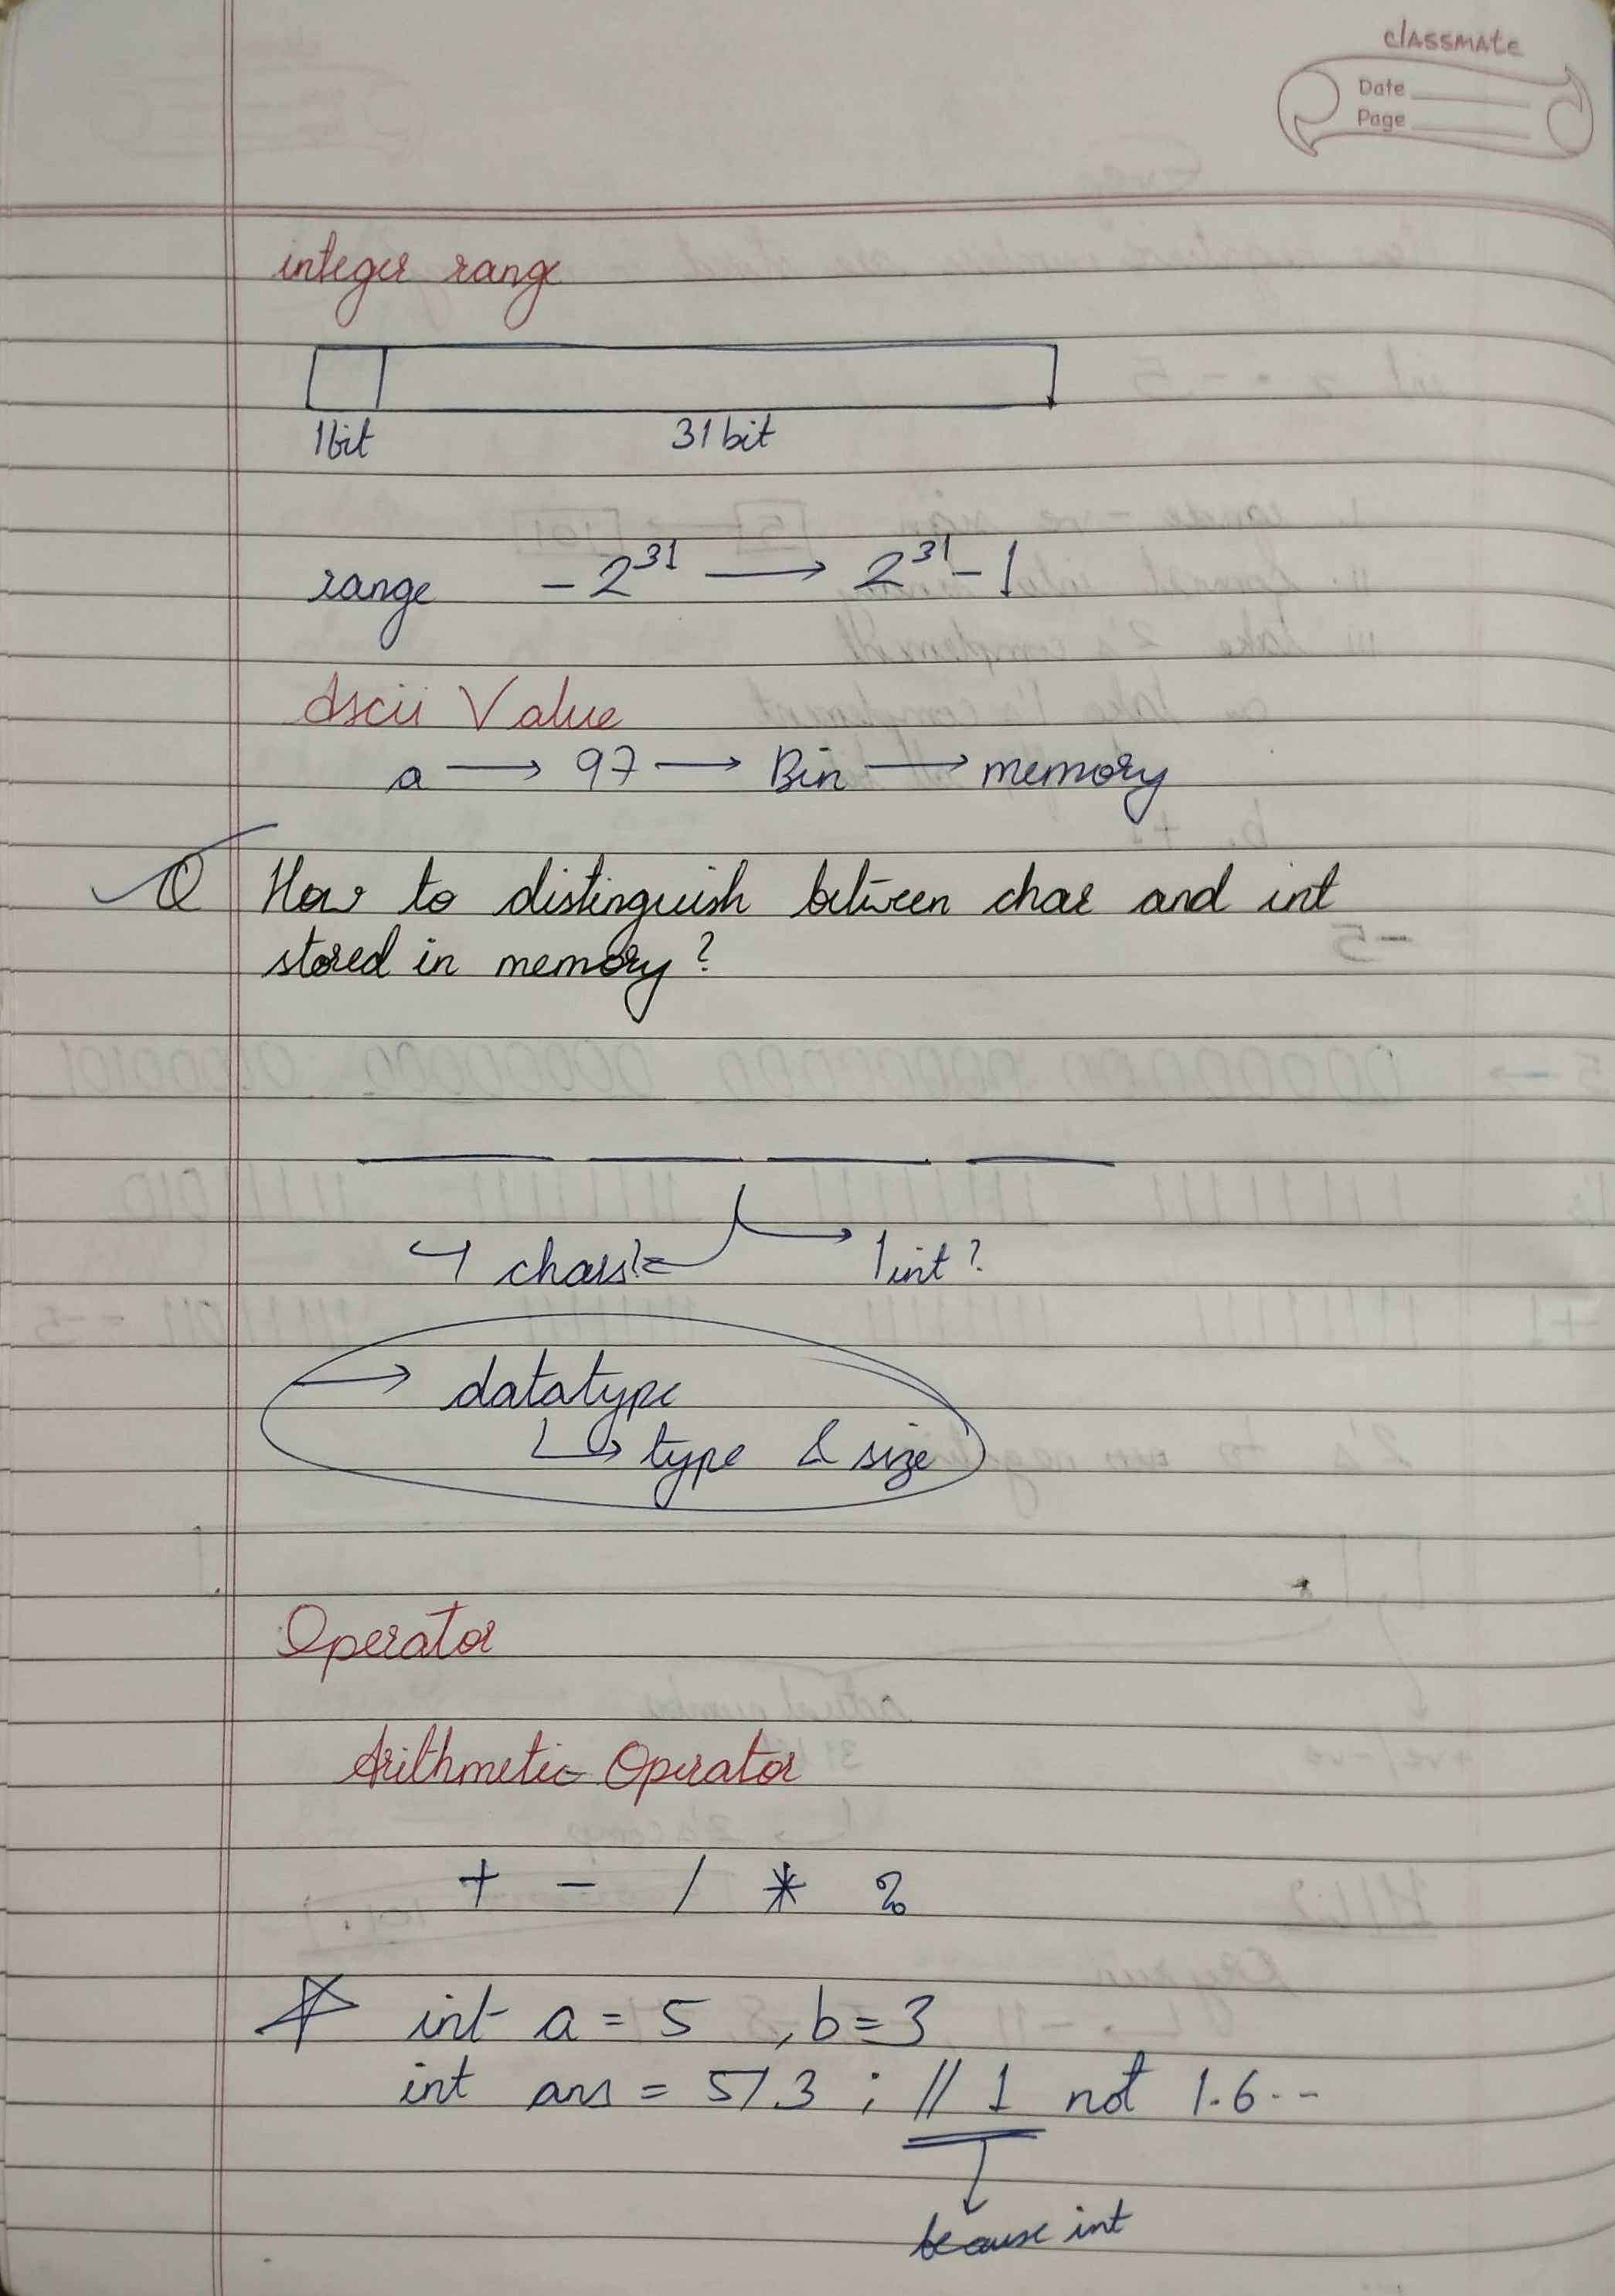 classmate
Date
Page
integer range
1bit 31 bit
range -2^31 → 2^31 - 1
Ascii Value
a → 97 → Bin → memory
Q How to distinguish between char and int
stored in memory?
4 chars 1 int?
→ datatype
↳ type & size
Operator
Arithmetic Operator
+ - / * %
☆ int a = 5 , b = 3
int ans = 5/3 ; // 1 not 1.6--
because int